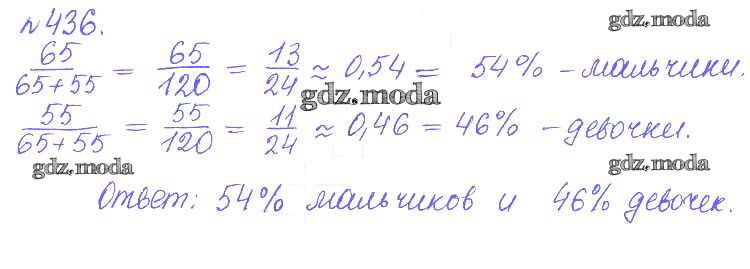 №436. gdz.moda
65/65+55 = 65/120 = 13/24 ≈ 0,54 = 54% – мальчики.
gdz.moda
55/65+55 = 55/120 = 11/24 ≈ 0,46 = 46% – девочки.
gdz.moda gdz.moda
Ответ: 54% мальчиков и 46% девочек.